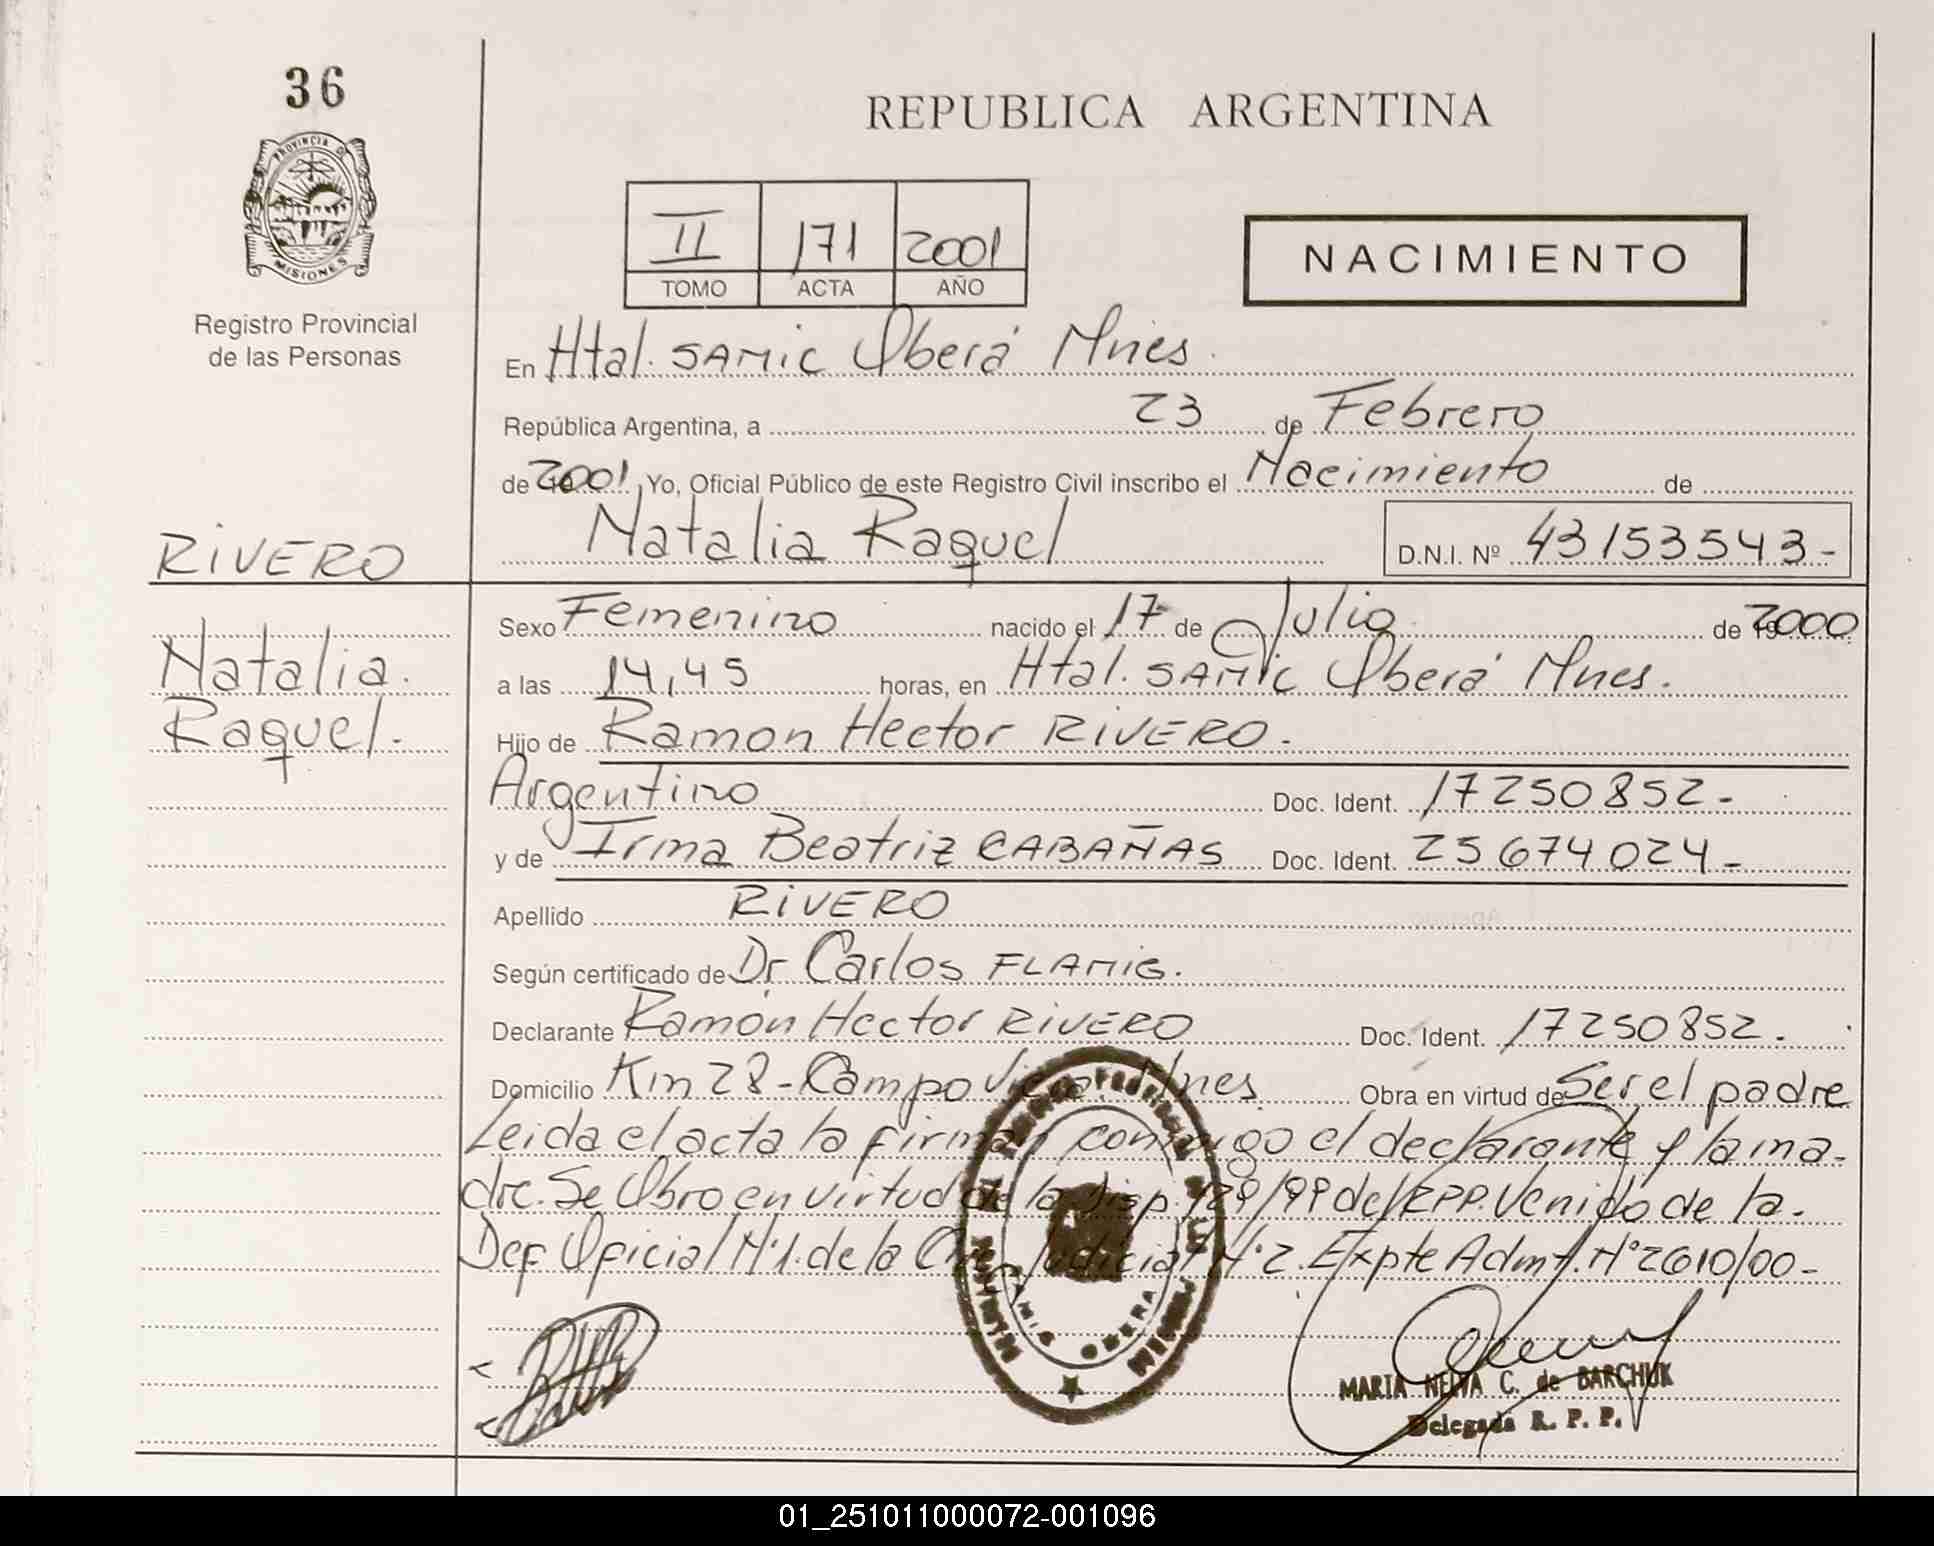 36
PROVINCIA D
MISIONES
Registro Provincial
de las Personas
REPUBLICA ARGENTINA
II 171 2001
TOMO ACTA AÑO
NACIMIENTO
En Htal. SAMIC Oberá Mnes.
República Argentina, a 23 de Febrero
de 2001 Yo, Oficial Público de este Registro Civil inscribo el Nacimiento de
Natalia Raquel D.N.I. Nº 43153543-
RIVERO
Natalia.
Raquel.-
Sexo Femenino nacido el 17 de Julio de 2000
a las 14,45 horas, en Htal. SAMIC Oberá Mnes.
Hijo de Ramon Hector RIVERO.
Argentino Doc. Ident. 17250852-
y de Irma Beatriz CABAÑAS Doc. Ident. 25674024-
Apellido RIVERO
Según certificado de Dr Carlos FLAMIG.
Declarante Ramón Hector RIVERO Doc. Ident. 17250852.
Domicilio Km 28-Campo Viera Mnes. Obra en virtud de Ser el padre
Leida el acta la firman conmigo el declarante y la ma-
dre. Se Obro en virtud de la Disp. 129/99 del RPP. Venido de la
Def Oficial N°1. de la Judicial N°2. Expte Adm. N°2610/00-
OBERA
MARIA NELVA C. de BARCHUK
Delegada R. P. P.
01_251011000072-001096